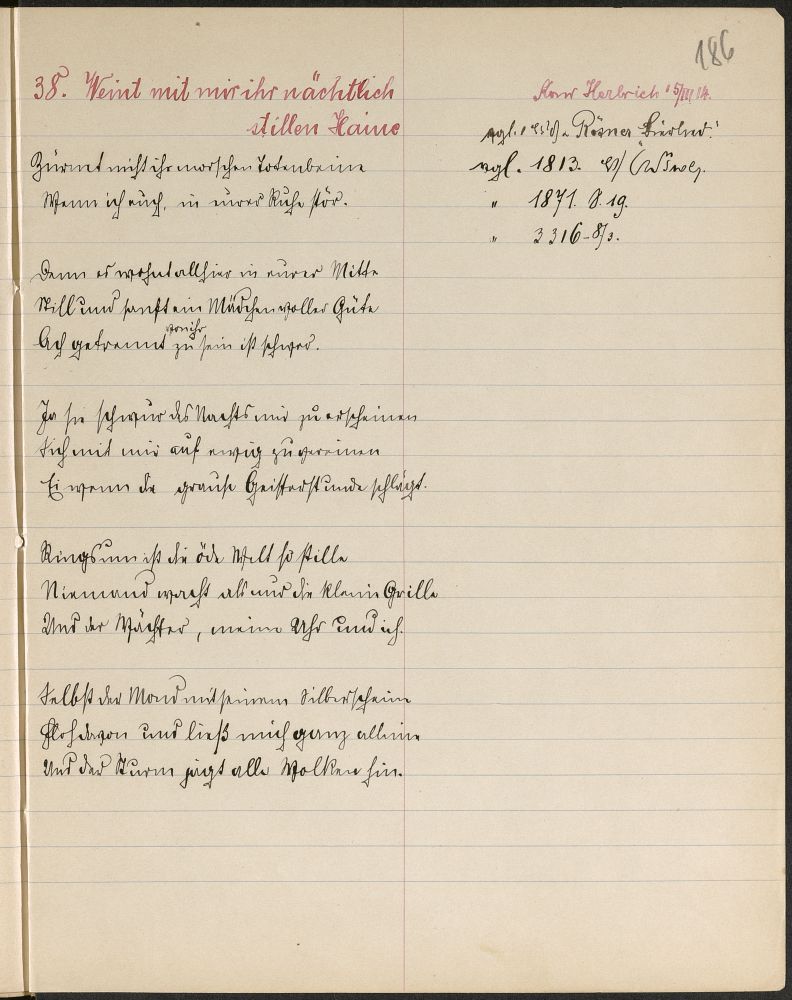 186
38. Weint mit mir ihr nächtlich
stillen Haine
Zürnet nicht ihr morschen Totenbeine
Wenn ich euch, in eurer Ruhe stör.
Denn es wohnt allhier in eurer Mitte
Still und sanft ein Mädchen voller Güte
von ihr
Ach getrennt zu sein ist schwer.
Ja sie schwur des Nachts mir zu erscheinen
Sich mit mir auf ewig zu vereinen
Ei wenn die grause Geisterstunde schlägt.
Ringsum ist die öde Welt so stille
Niemand wacht als nur die kleine Grille
Und der Wächter, meine Uhr und ich.
Selbst der Mond mit seinem Silberscheine
Floh davon und ließ mich ganz alleine
Und der Sturm jagt alle Wolken hin.
Herbrich 5/III 14.
vgl. Rösner
vgl. 1813.
" 1871. S. 19.
" 3316-8/3.